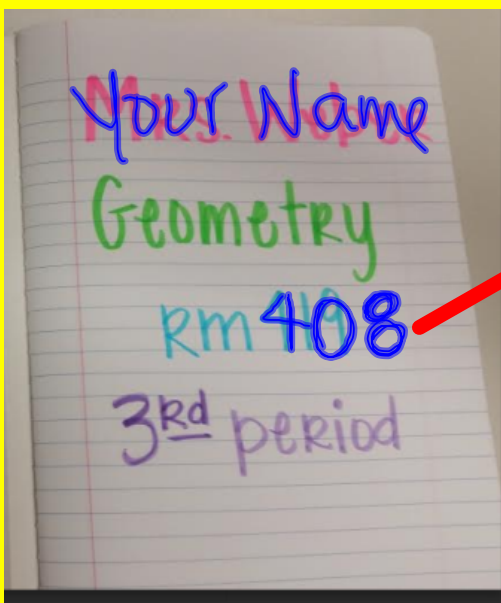 Your Name
Geometry
Rm 408
3rd period